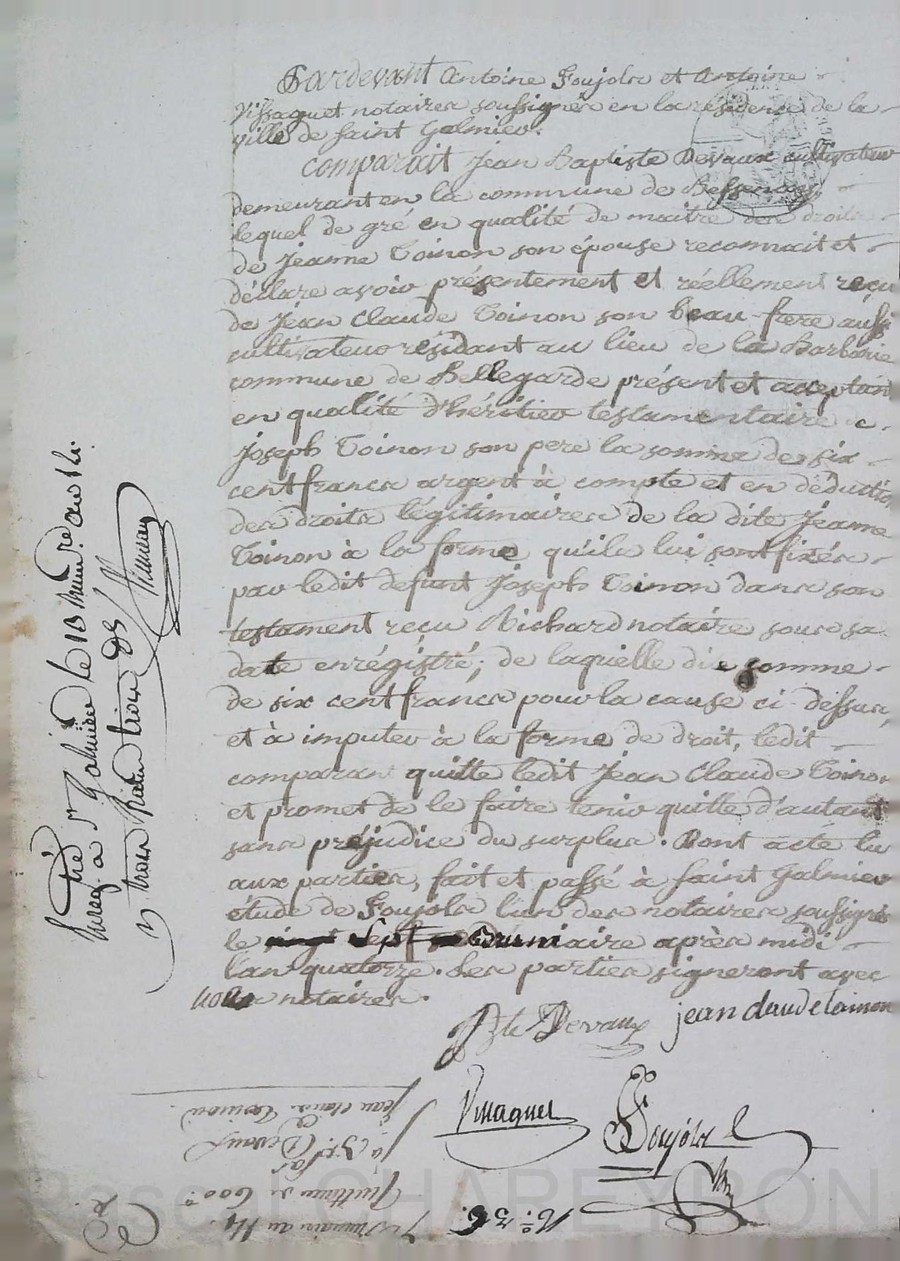 Pardevant Antoine Foujols et Antoine
Vissaguet notaires soussignés en la résidence de la
ville de Saint Galmier.
Comparait Jean Baptiste Devaux cultivateur
demeurant en la commune de Bessenay
lequel de gré en qualité de maitre des droits
de Jeanne Toinon son épouse reconnait et
déclare avoir présentement et réellement reçu
de Jean Claude Toinon son beau-frere aussi
cultivateur résidant au lieu de la Barbarie
commune de Bellegarde présent et acceptant
en qualité d'héritier testamentaire
Joseph Toinon son pere la somme de six
cent francs argent à compte et en déduction
des droits légitimaires de la dite Jeanne
Toinon à la forme qu'ils lui sont fixés
par ledit defunt Joseph Toinon dans son
testament reçu Richard notaire sous sa
date enrégistré; de laquelle dite somme
de six cent francs pour la cause ci-dessus,
et à imputer à la forme de droit, ledit
comparant quitte ledit Jean Claude Toinon
et promet de le faire tenir quitte d'autant
sans préjudice du surplus. Dont acte lu
aux parties, fait et passé à Saint Galmier
étude de Foujols l'un des notaires soussignés
le vingt sept Brumaire après midi
l'an quatorze. Les parties signeront avec
nous notaires.
Bte Devaux jean claude toinon
Vissaguet Foujols
Enreg. à St Galmier le brumaire an 14.
Jean Claude Toinon.
à Jn Bte Devaux
Quittance de 600
Brumaire an 14.
No. 36
Pascal CHAPEYRON